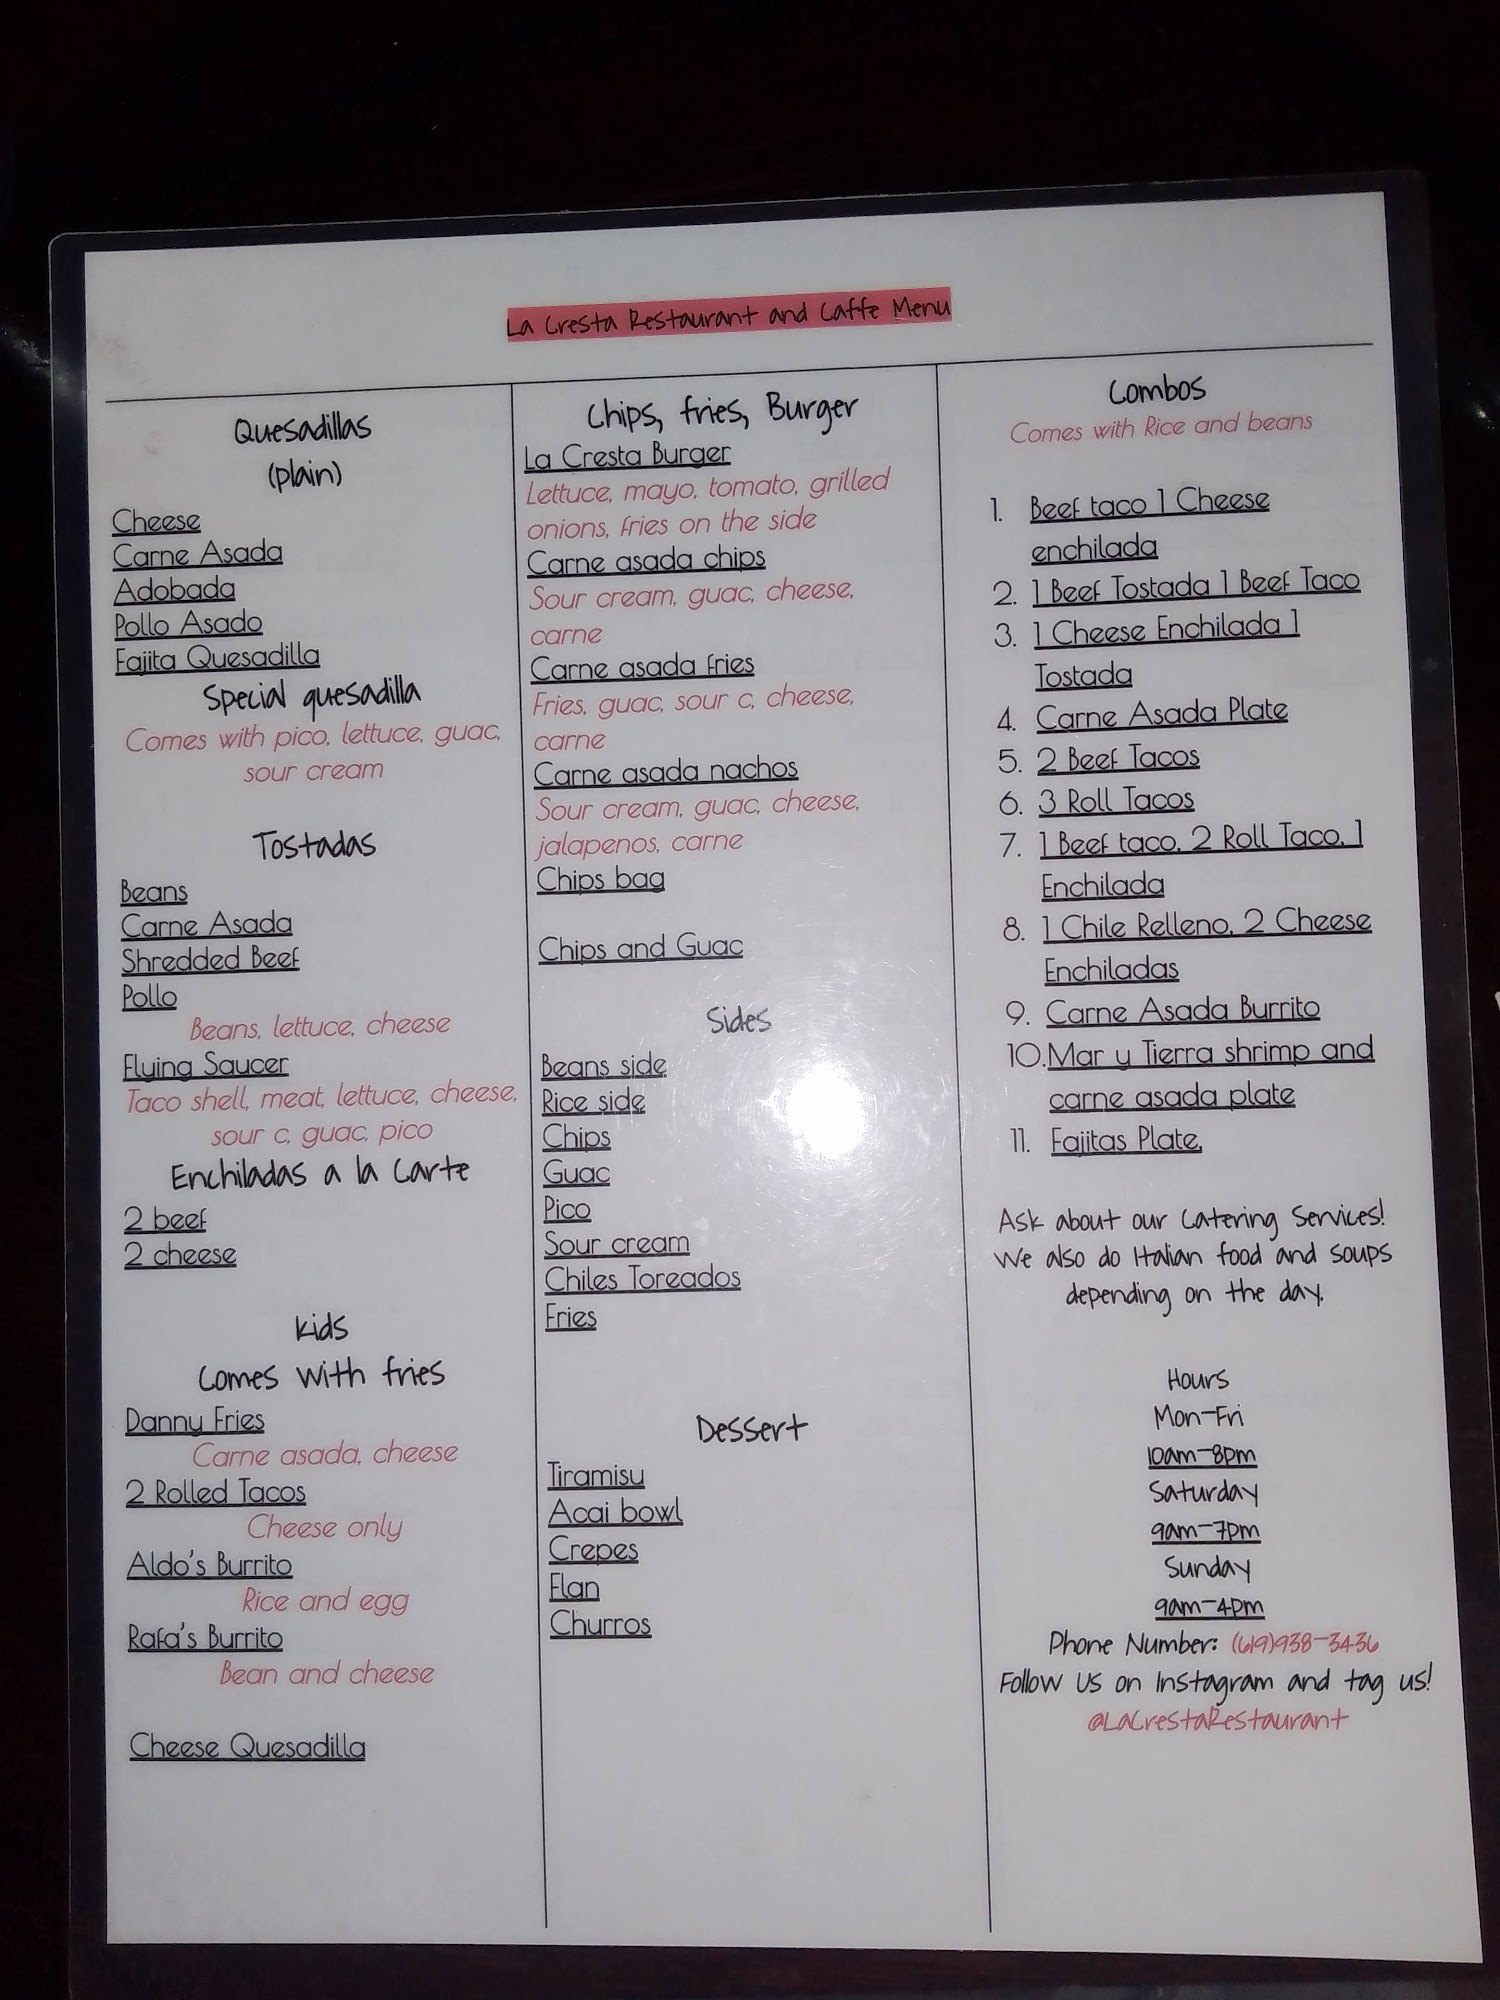 La Cresta Restaurant and Caffe Menu
Quesadillas
(plain)
Cheese
Carne Asada
Adobada
Pollo Asado
Fajita Quesadilla
Special quesadilla
Comes with pico, lettuce, guac,
sour cream
Tostadas
Beans
Carne Asada
Shredded Beef
Pollo
Beans, lettuce, cheese
Flying Saucer
Taco shell, meat, lettuce, cheese,
sour c, guac, pico
Enchiladas a la Carte
2 beef
2 cheese
Kids
Comes with fries
Danny Fries
Carne asada, cheese
2 Rolled Tacos
Cheese only
Aldo's Burrito
Rice and egg
Rafa's Burrito
Bean and cheese
Cheese Quesadilla
Chips, fries, Burger
La Cresta Burger
Lettuce, mayo, tomato, grilled
onions, fries on the side
Carne asada chips
Sour cream, guac, cheese,
carne
Carne asada fries
Fries, guac, sour c, cheese,
carne
Carne asada nachos
Sour cream, guac, cheese,
jalapenos, carne
Chips bag
Chips and Guac
Sides
Beans side
Rice side
Chips
Guac
Pico
Sour cream
Chiles Toreados
Fries
Dessert
Tiramisu
Acai bowl
Crepes
Flan
Churros
Combos
Comes with Rice and beans
1. Beef taco 1 Cheese
enchilada
2. 1 Beef Tostada 1 Beef Taco
3. 1 Cheese Enchilada 1
Tostada
4. Carne Asada Plate
5. 2 Beef Tacos
6. 3 Roll Tacos
7. 1 Beef taco, 2 Roll Taco, 1
Enchilada
8. 1 Chile Relleno, 2 Cheese
Enchiladas
9. Carne Asada Burrito
10. Mar y Tierra shrimp and
carne asada plate
11. Fajitas Plate,
Ask about our Catering Services!
We also do Italian food and soups
depending on the day.
Hours
Mon-Fri
10am-8pm
Saturday
9am-7pm
Sunday
9am-4pm
Phone Number: (619)938-3436
Follow us on Instagram and tag us!
@LaCrestaRestaurant